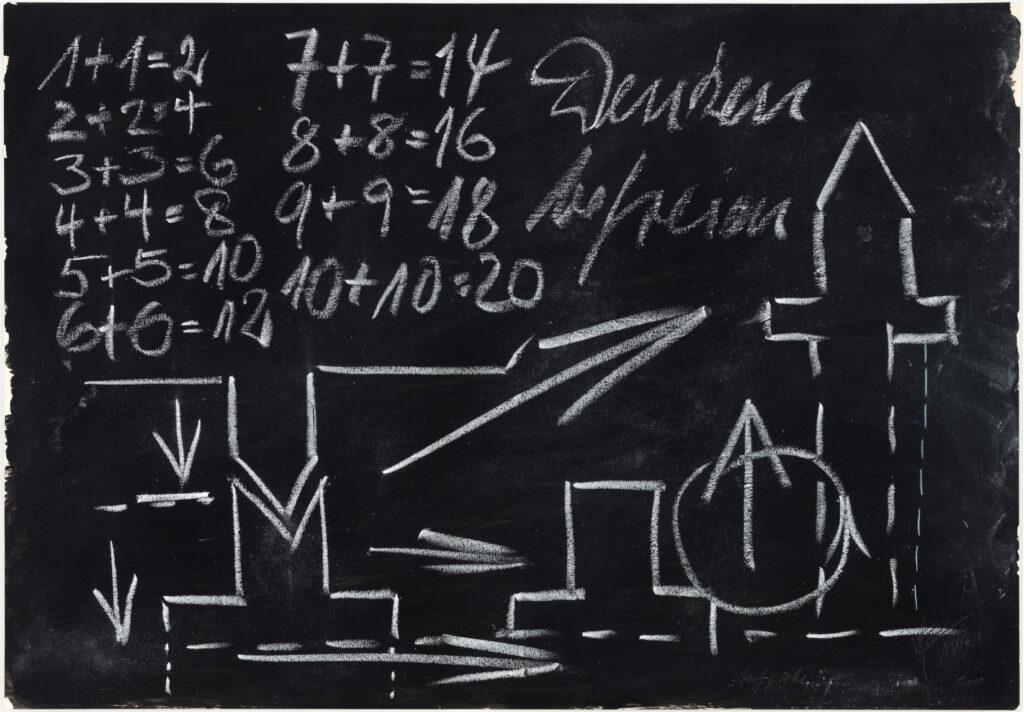 1+1=2
2+2=4
3+3=6
4+4=8
5+5=10
6+6=12
7+7=14
8+8=16
9+9=18
10+10=20
Denken
befreien